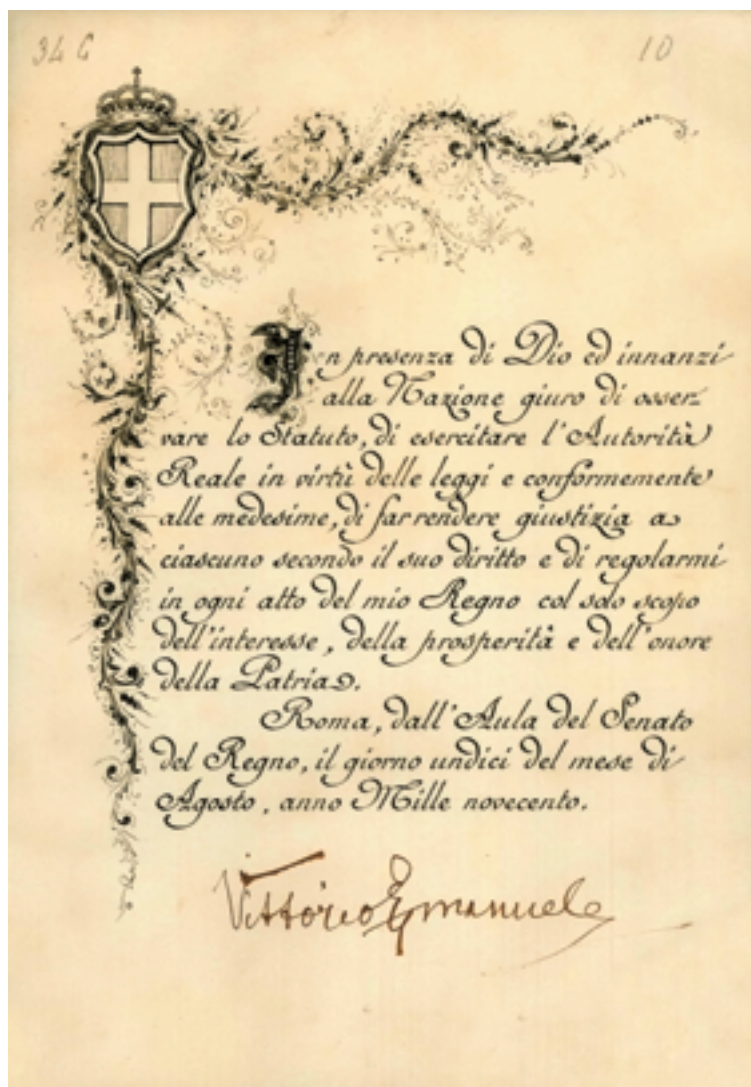 34 G 10
In presenza di Dio ed innanzi
alla Nazione giuro di osser-
vare lo Statuto, di esercitare l'Autorità
Reale in virtù delle leggi e conformemente
alle medesime, di far rendere giustizia a
ciascuno secondo il suo diritto e di regolarmi
in ogni atto del mio Regno col solo scopo
dell'interesse, della prosperità e dell'onore
della Patria.
Roma, dall'Aula del Senato
del Regno, il giorno undici del mese di
Agosto, anno Mille novecento.
Vittorio Emanuele